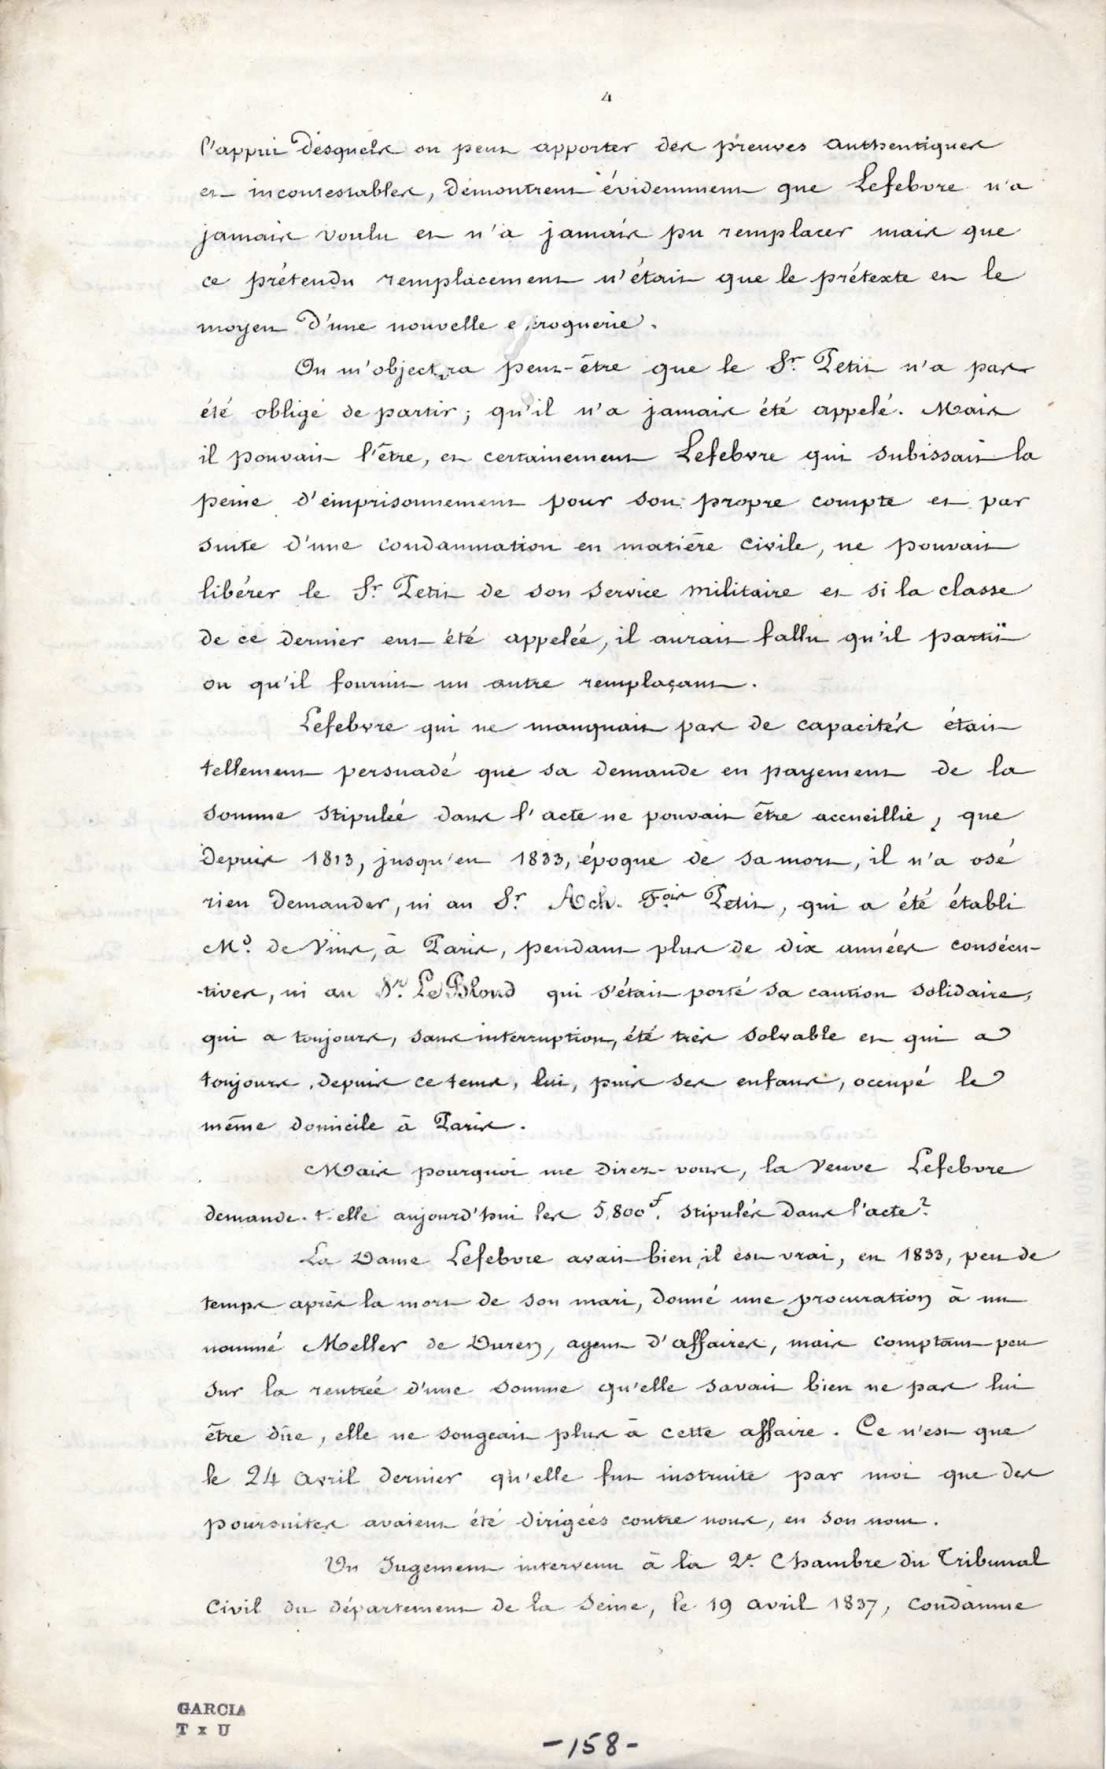 4
l'appui desquels on peut apporter des preuves authentiques
et incontestables, démontrent évidemment que Lefebvre n'a
jamais voulu et n'a jamais pu remplacer mais que
ce prétendu remplacement n'était que le prétexte et le
moyen d'une nouvelle e croquerie.
On m'object ra peut-être que le Sr. Petit n'a pas
été obligé de partir; qu'il n'a jamais été appelé. Mais
il pouvait l'être, et certainement Lefebvre qui subissait la
peine d'emprisonnement pour son propre compte et par
suite d'une condamnation en matière civile, ne pouvait
libérer le Sr. Petit de son service militaire et si la classe
de ce dernier eut été appelée, il aurait fallu qu'il partit
ou qu'il fournit un autre remplaçant.
Lefebvre qui ne manquait pas de capacités était
tellement persuadé que sa demande en payement de la
somme stipulée dans l'acte ne pouvait être accueillie, que
depuis 1813, jusqu'en 1833, époque de sa mort, il n'a osé
rien demander, ni au Sr. Ach. Fois Petit, qui a été établi
Md. de Vins, à Paris, pendant plus de dix années consécu-
-tives, ni au Sr. Le Blond qui s'était porté sa caution solidaire,
qui a toujours, sans interruption, été très solvable et qui a
toujours, depuis ce tems, lui, puis ses enfans, occupé le
même domicile à Paris.
Mais pourquoi me direz-vous, la Veuve Lefebvre
demande-t-elle aujourd'hui les 5,800f. stipulés dans l'acte?
La Dame Lefebvre avait bien, il est vrai, en 1833, peu de
temps après la mort de son mari, donné une procuration à un
nommé Meller de Duren, agent d'affaires, mais comptant peu
sur la rentrée d'une somme qu'elle savait bien ne pas lui
être dûe, elle ne songeait plus à cette affaire. Ce n'est que
le 24 avril dernier qu'elle fut instruite par moi que des
poursuites avaient été dirigées contre nous, en son nom.
Un Jugement intervenu à la 2e. Chambre du Tribunal
Civil du département de la Seine, le 19 avril 1837, condamne
GARCIA
T x U
-158-